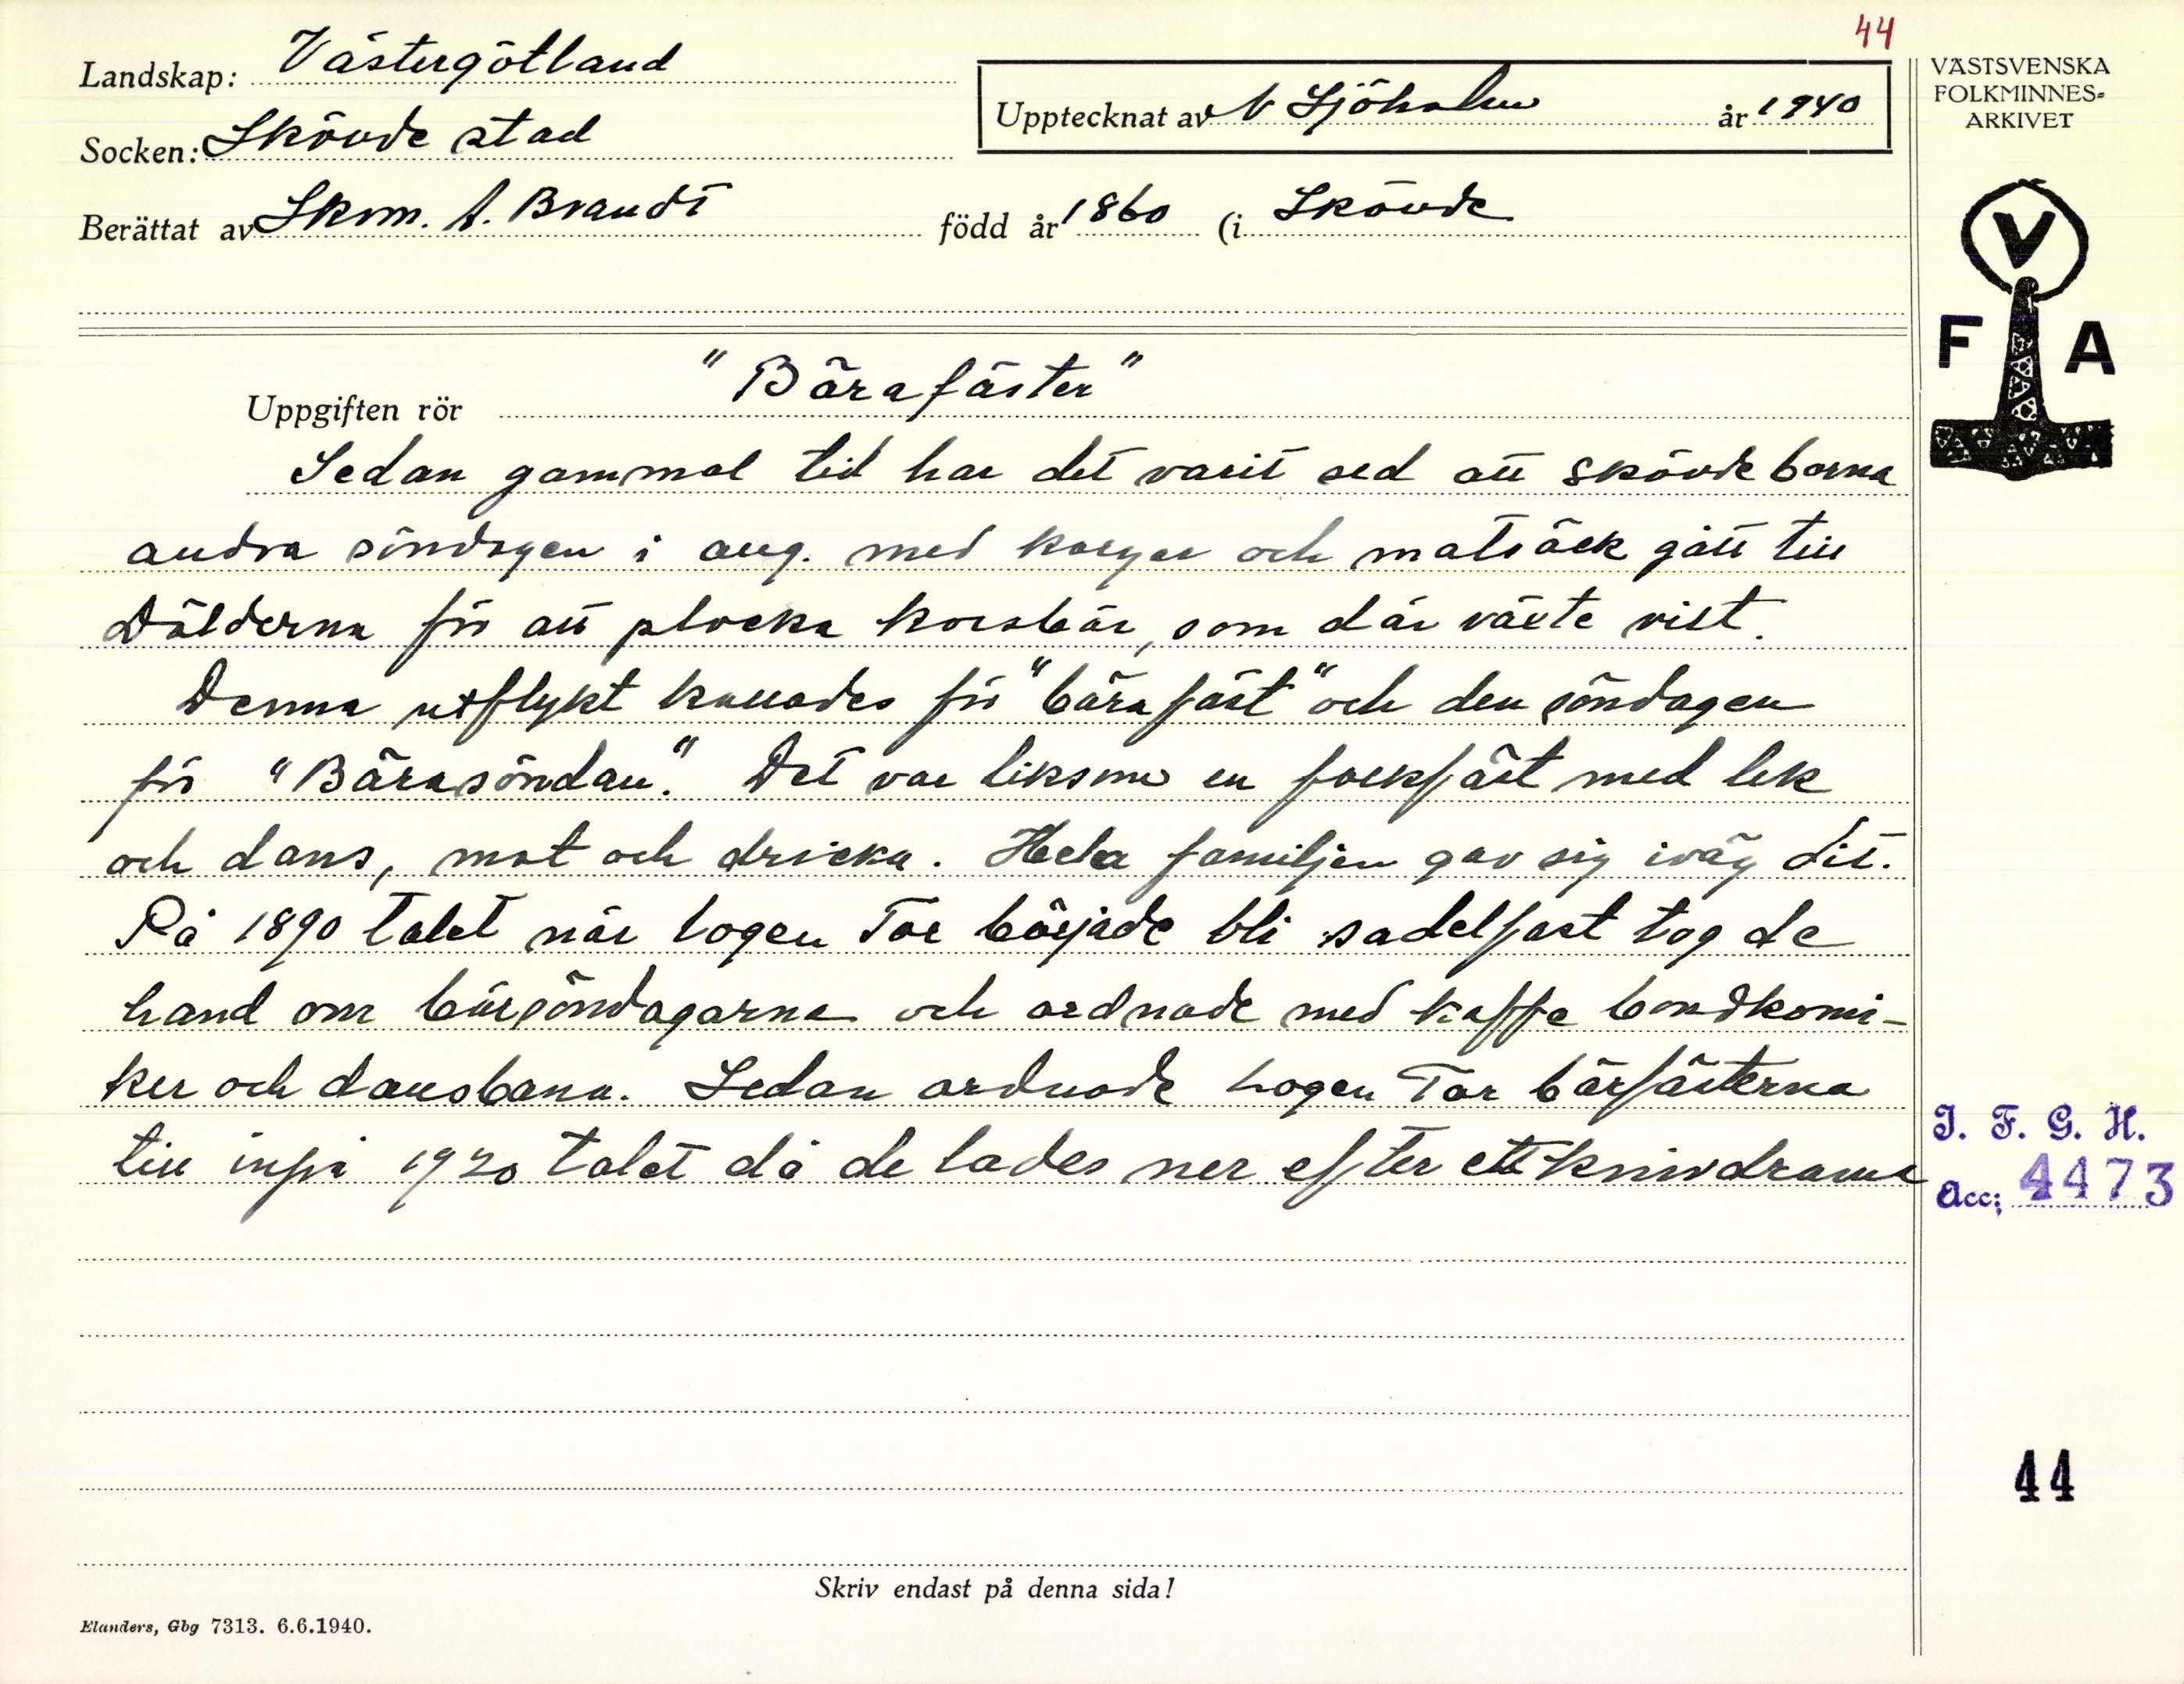 44
Landskap: Västergötland
Socken: Skövde stad
Upptecknat av N Sjöholm år 1940
VÄSTSVENSKA
FOLKMINNES=
ARKIVET
Berättat av Skom. A. Brandt född år 1860 (i Skövde
V
F A
Uppgiften rör "Bärafäster"
Sedan gammal tid har det varit sed att skövdeborna
andra söndagen i aug. med korgar och matsäck gått till
Dälderna för att plocka korsbär, som där växte vilt.
Denna utflykt kallades för "bärafäst" och den söndagen
för "Bärasöndan". Det var liksom en folkfäst med lek
och dans, mat och dricka. Hela familjen gav sig iväg dit.
På 1890 talet när logen Tor började bli sadelfast tog de
hand om bärsöndagarna och ordnade med kaffe bondkomi-
ker och dansbana. Sedan ordnade Logen Tor bärfästerna
till inpå 1920 talet då de lades ner efter ett knivdrama
I. F. G. H.
Acc; 4473
44
Skriv endast på denna sida!
Elanders, Gbg 7313. 6.6.1940.